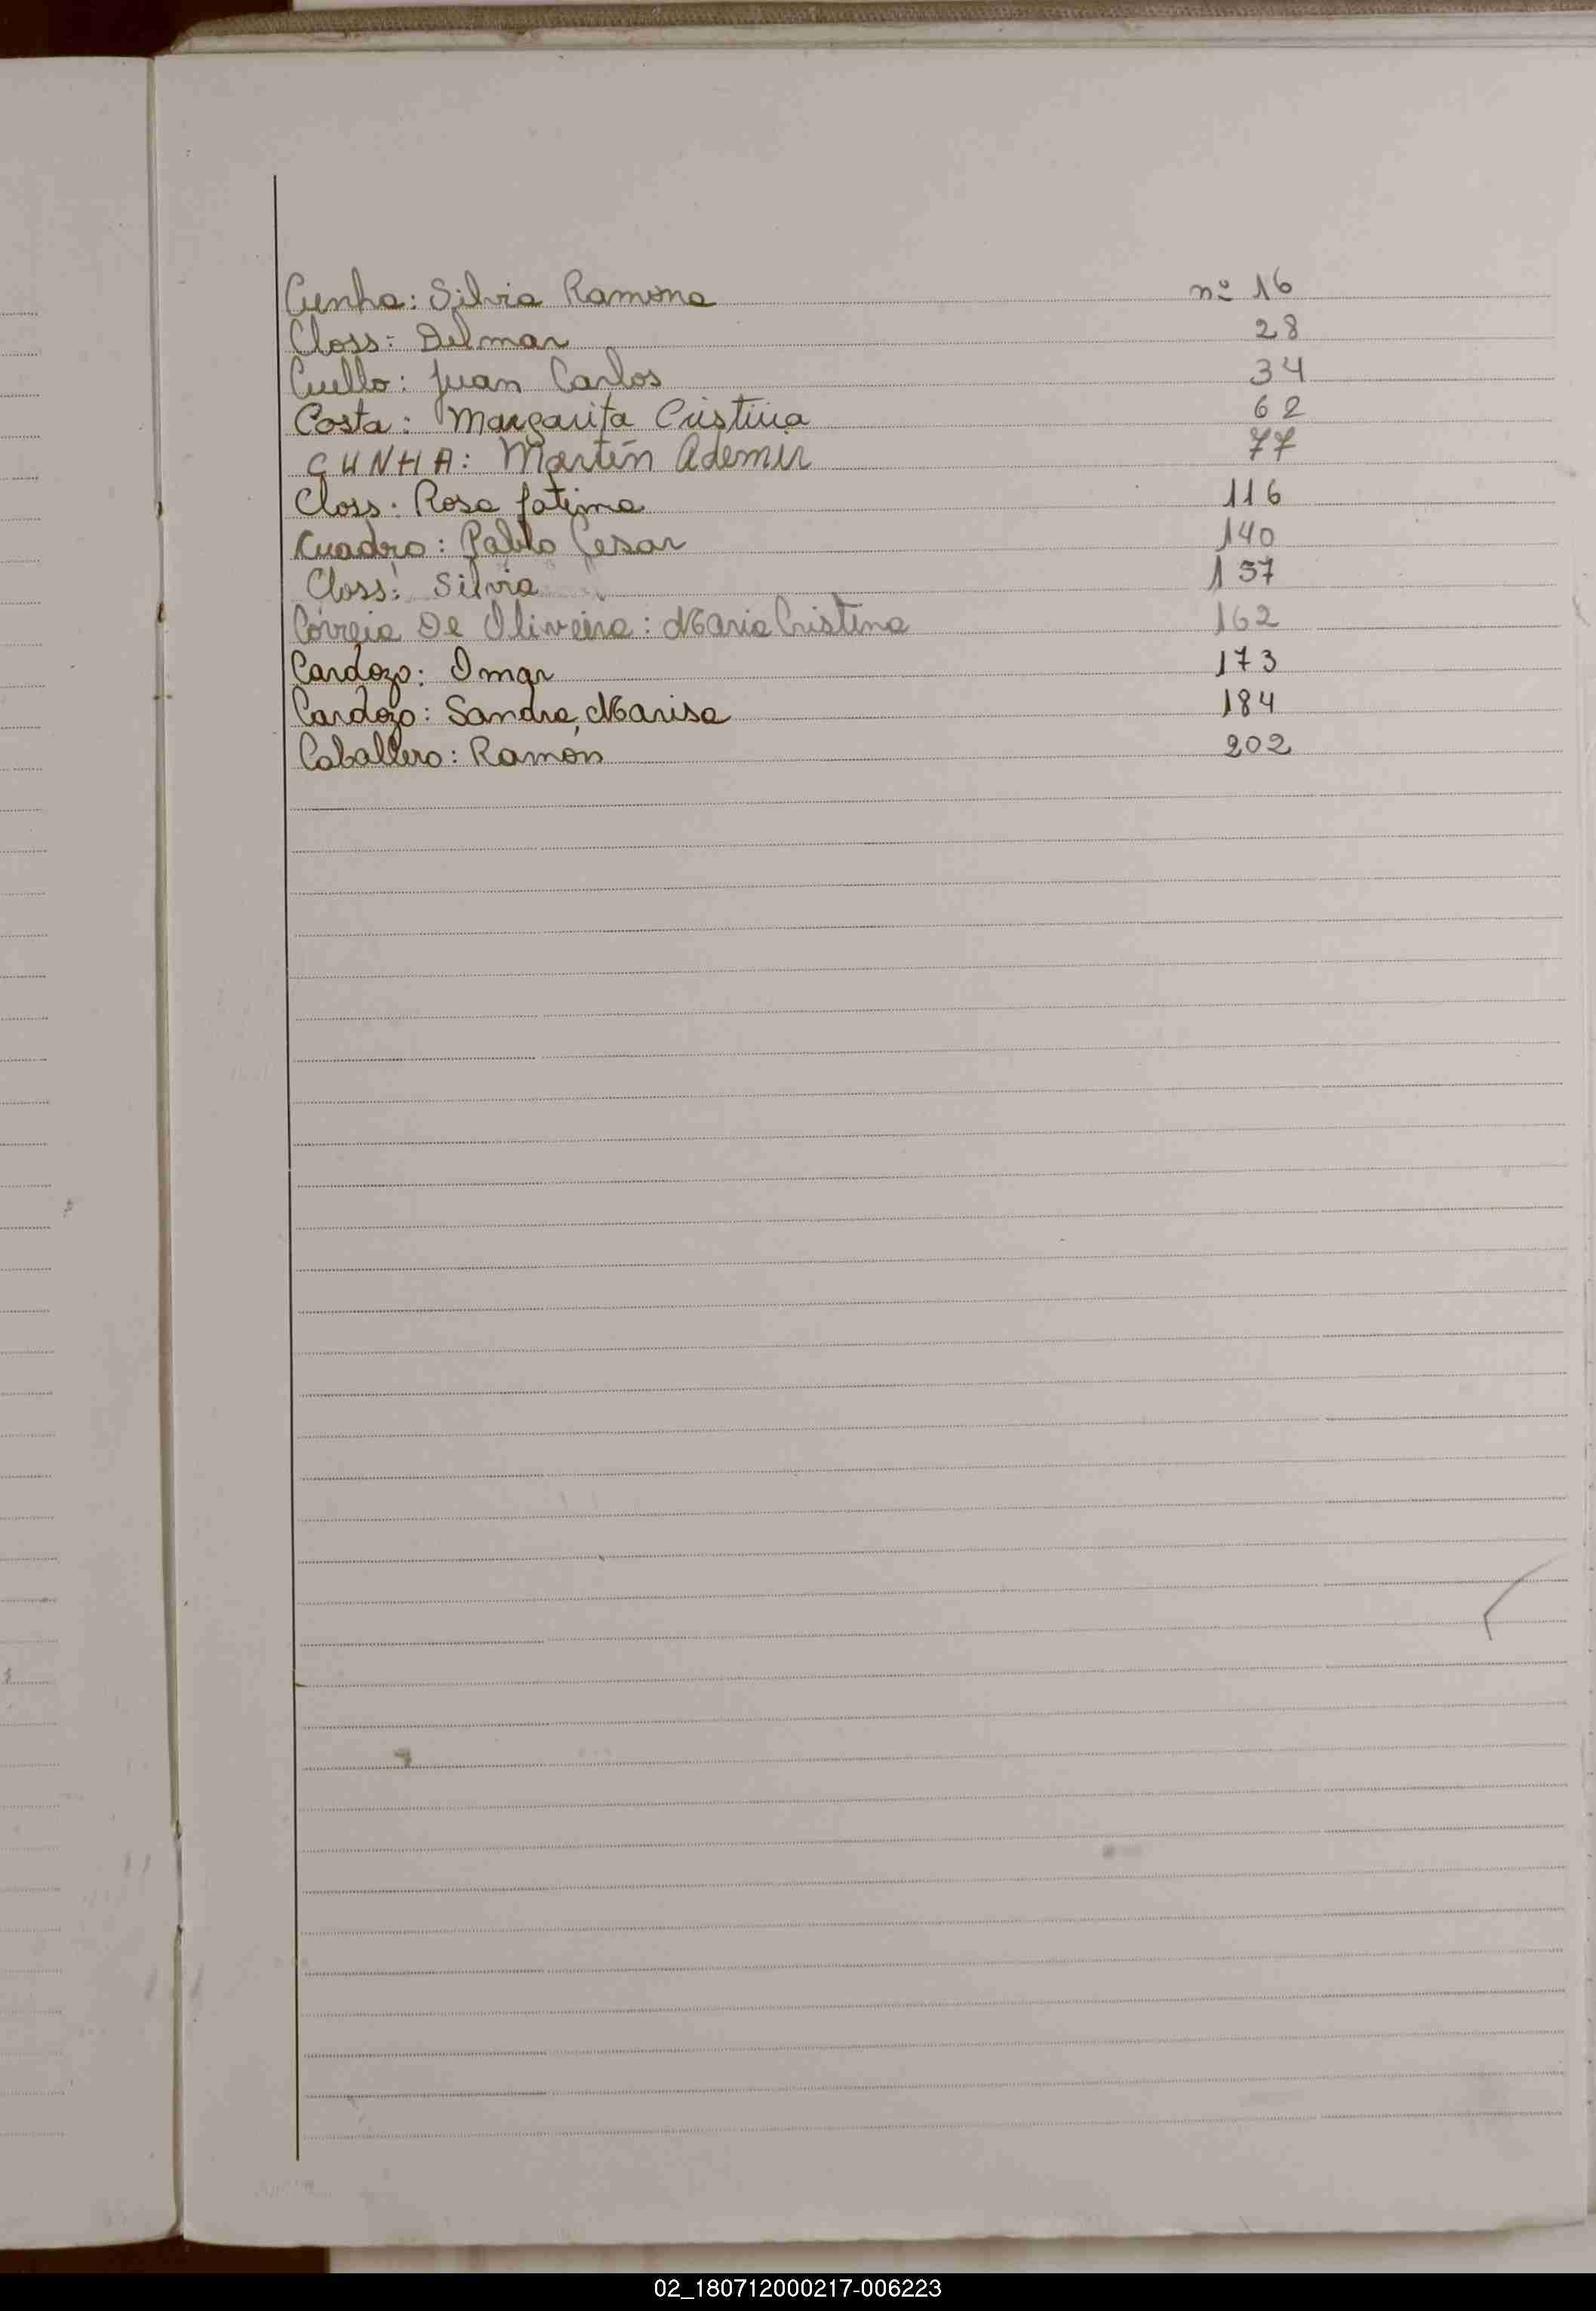 Cunha: Silvia Ramona nº 16
Closs: Delmar 28
Cuello: Juan Carlos 34
Costa: Margarita Cristina 62
CUNHA: Martín Ademir 77
Closs: Rosa fatima 116
Cuadro: Pablo Cesar 140
Closs: Silvia 157
Correia De Oliveira: Maria Cristina 162
Cardozo: Omar 173
Cardozo: Sandra Marisa 184
Caballero: Ramón 202
02_180712000217-006223